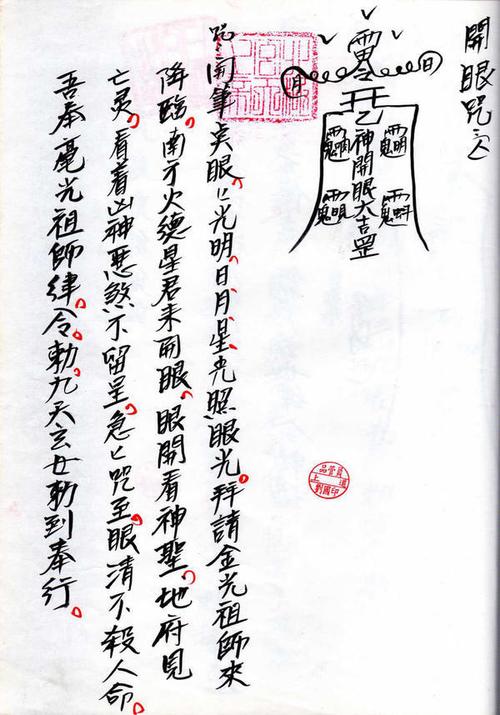 開眼咒
日
月
神開眼大吉罡
咒開筆矣眼〻光明日月星光照眼光拜請金光祖師來
降臨南方火德星君来開眼眼開看神聖地府見
亡灵看着凶神惡煞不留呈急〻咒至眼清不殺人命
吾奉毫光祖師律令勅九天玄女勅到奉行